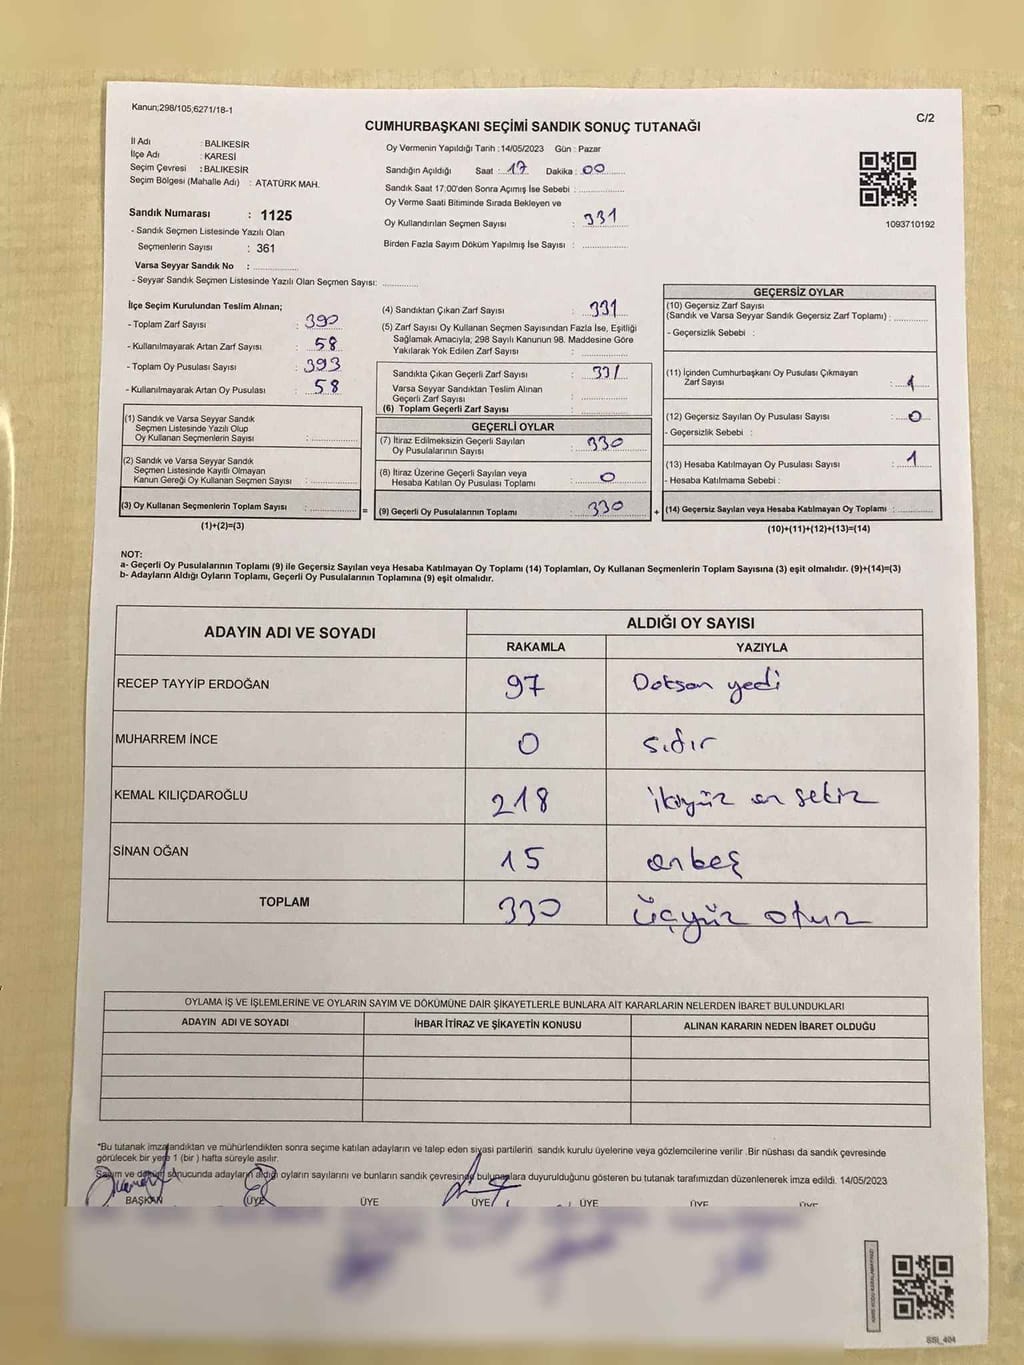 Kanun;298/105,6271/18-1
C/2
CUMHURBAŞKANI SEÇİMİ SANDIK SONUÇ TUTANAĞI
İl Adı : BALIKESİR
İlçe Adı : KARESİ
Seçim Çevresi : BALIKESİR
Seçim Bölgesi (Mahalle Adı) : ATATÜRK MAH.
Sandık Numarası : 1125
- Sandık Seçmen Listesinde Yazılı Olan
Seçmenlerin Sayısı : 361
Varsa Seyyar Sandık No :
- Seyyar Sandık Seçmen Listesinde Yazılı Olan Seçmen Sayısı:
Oy Vermenin Yapıldığı Tarih :14/05/2023 Gün : Pazar
Sandığın Açıldığı Saat : 17 Dakika : 00
Sandık Saat 17:00'den Sonra Açımış İse Sebebi :
Oy Verme Saati Bitiminde Sırada Bekleyen ve
Oy Kullandırılan Seçmen Sayısı : 331
Birden Fazla Sayım Döküm Yapılmış İse Sayısı :
1093710192
İlçe Seçim Kurulundan Teslim Alınan;
- Toplam Zarf Sayısı : 390
- Kullanılmayarak Artan Zarf Sayısı : 58
- Toplam Oy Pusulası Sayısı : 393
- Kullanılmayarak Artan Oy Pusulası : 58
(1) Sandık ve Varsa Seyyar Sandık
Seçmen Listesinde Yazılı Olup
Oy Kullanan Seçmenlerin Sayısı :
(2) Sandık ve Varsa Seyyar Sandık
Seçmen Listesinde Kayıtlı Olmayan
Kanun Gereği Oy Kullanan Seçmen Sayısı :
(3) Oy Kullanan Seçmenlerin Toplam Sayısı :
(1)+(2)=(3)
=
(4) Sandıktan Çıkan Zarf Sayısı : 331
(5) Zarf Sayısı Oy Kullanan Seçmen Sayısından Fazla İse, Eşitliği
Sağlamak Amacıyla; 298 Sayılı Kanunun 98. Maddesine Göre
Yakılarak Yok Edilen Zarf Sayısı :
Sandıkta Çıkan Geçerli Zarf Sayısı : 331
Varsa Seyyar Sandıktan Teslim Alınan
Geçerli Zarf Sayısı :
(6) Toplam Geçerli Zarf Sayısı :
GEÇERLİ OYLAR
(7) İtiraz Edilmeksizin Geçerli Sayılan
Oy Pusulalarının Sayısı : 330
(8) İtiraz Üzerine Geçerli Sayılan veya
Hesaba Katılan Oy Pusulası Toplamı : 0
(9) Geçerli Oy Pusulalarının Toplamı : 330
+
GEÇERSİZ OYLAR
(10) Geçersiz Zarf Sayısı
(Sandık ve Varsa Seyyar Sandık Geçersiz Zarf Toplamı) :
- Geçersizlik Sebebi :
(11) İçinden Cumhurbaşkanı Oy Pusulası Çıkmayan
Zarf Sayısı : 1
(12) Geçersiz Sayılan Oy Pusulası Sayısı : 0
- Geçersizlik Sebebi :
(13) Hesaba Katılmayan Oy Pusulası Sayısı : 1
- Hesaba Katılmama Sebebi :
(14) Geçersiz Sayılan veya Hesaba Katılmayan Oy Toplamı :
(10)+(11)+(12)+(13)=(14)
NOT:
a- Geçerli Oy Pusulalarının Toplamı (9) ile Geçersiz Sayılan veya Hesaba Katılmayan Oy Toplamı (14) Toplamları, Oy Kullanan Seçmenlerin Toplam Sayısına (3) eşit olmalıdır. (9)+(14)=(3)
b- Adayların Aldığı Oyların Toplamı, Geçerli Oy Pusulalarının Toplamına (9) eşit olmalıdır.
ADAYIN ADI VE SOYADI
ALDIĞI OY SAYISI
RAKAMLA YAZIYLA
RECEP TAYYİP ERDOĞAN 97 Doksan yedi
MUHARREM İNCE 0 sıfır
KEMAL KILIÇDAROĞLU 218 ikiyüz on sekiz
SİNAN OĞAN 15 onbeş
TOPLAM 330 üçyüz otuz
OYLAMA İŞ VE İŞLEMLERİNE VE OYLARIN SAYIM VE DÖKÜMÜNE DAİR ŞİKAYETLERLE BUNLARA AİT KARARLARIN NELERDEN İBARET BULUNDUKLARI
ADAYIN ADI VE SOYADI İHBAR İTİRAZ VE ŞİKAYETİN KONUSU ALINAN KARARIN NEDEN İBARET OLDUĞU
*Bu tutanak imzalandıktan ve mühürlendikten sonra seçime katılan adayların ve talep eden siyasi partilerin sandık kurulu üyelerine veya gözlemcilerine verilir .Bir nüshası da sandık çevresinde
görülecek bir yere 1 (bir ) hafta süreyle asılır.
Sayım ve döküm sonucunda adayların aldığı oyların sayılarını ve bunların sandık çevresinde bulunanlara duyurulduğunu gösteren bu tutanak tarafımızdan düzenlenerek imza edildi. 14/05/2023
BAŞKAN ÜYE ÜYE ÜYE ÜYE ÜYE ÜYE
SSI_404